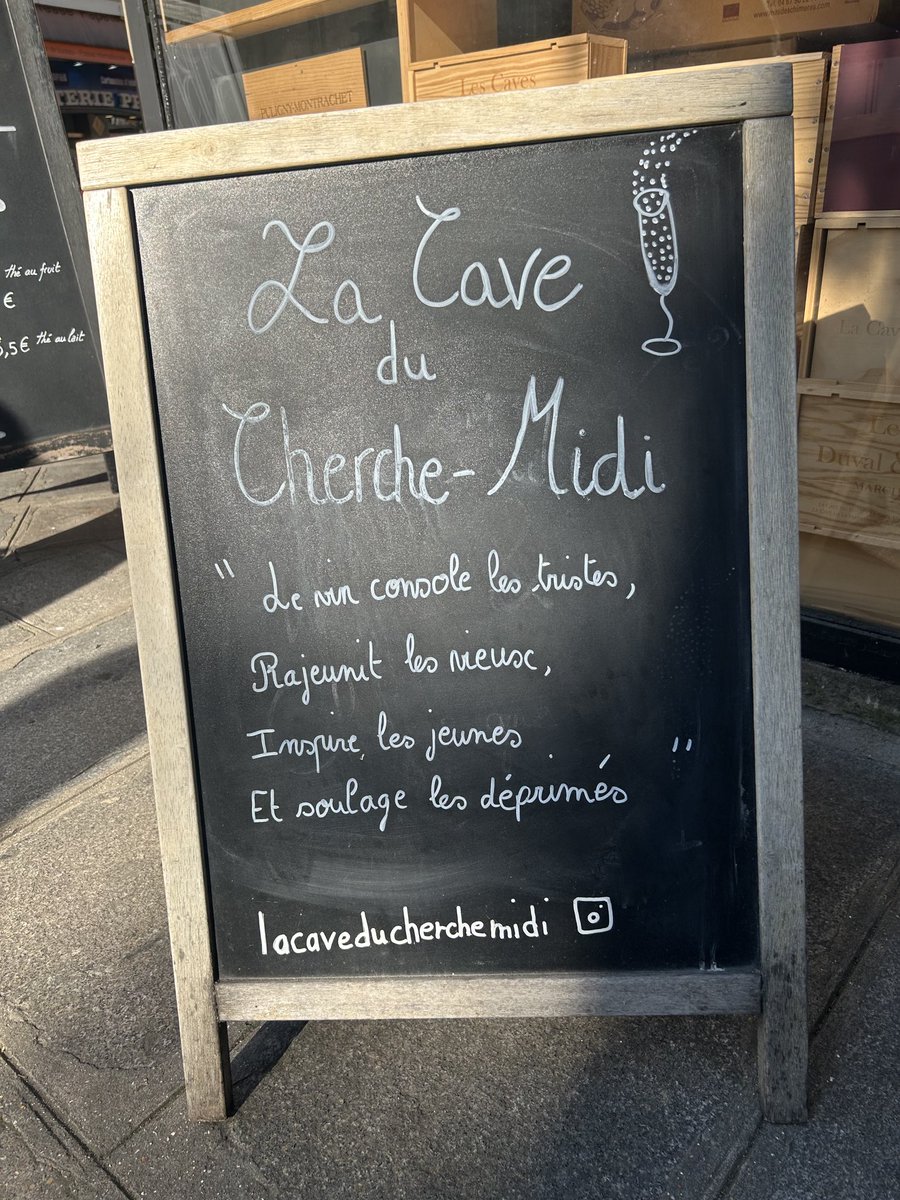 La Cave
du
Cherche-Midi
" Le vin console les tristes,
Rajeunit les vieux,
Inspire les jeunes
Et soulage les déprimés "
lacaveducherchemidi
PULIGNY-MONTRACHET
Les Caves
thé au fruit
€
5,5€ thé au lait
La Cav
Le
Duval &
MARC